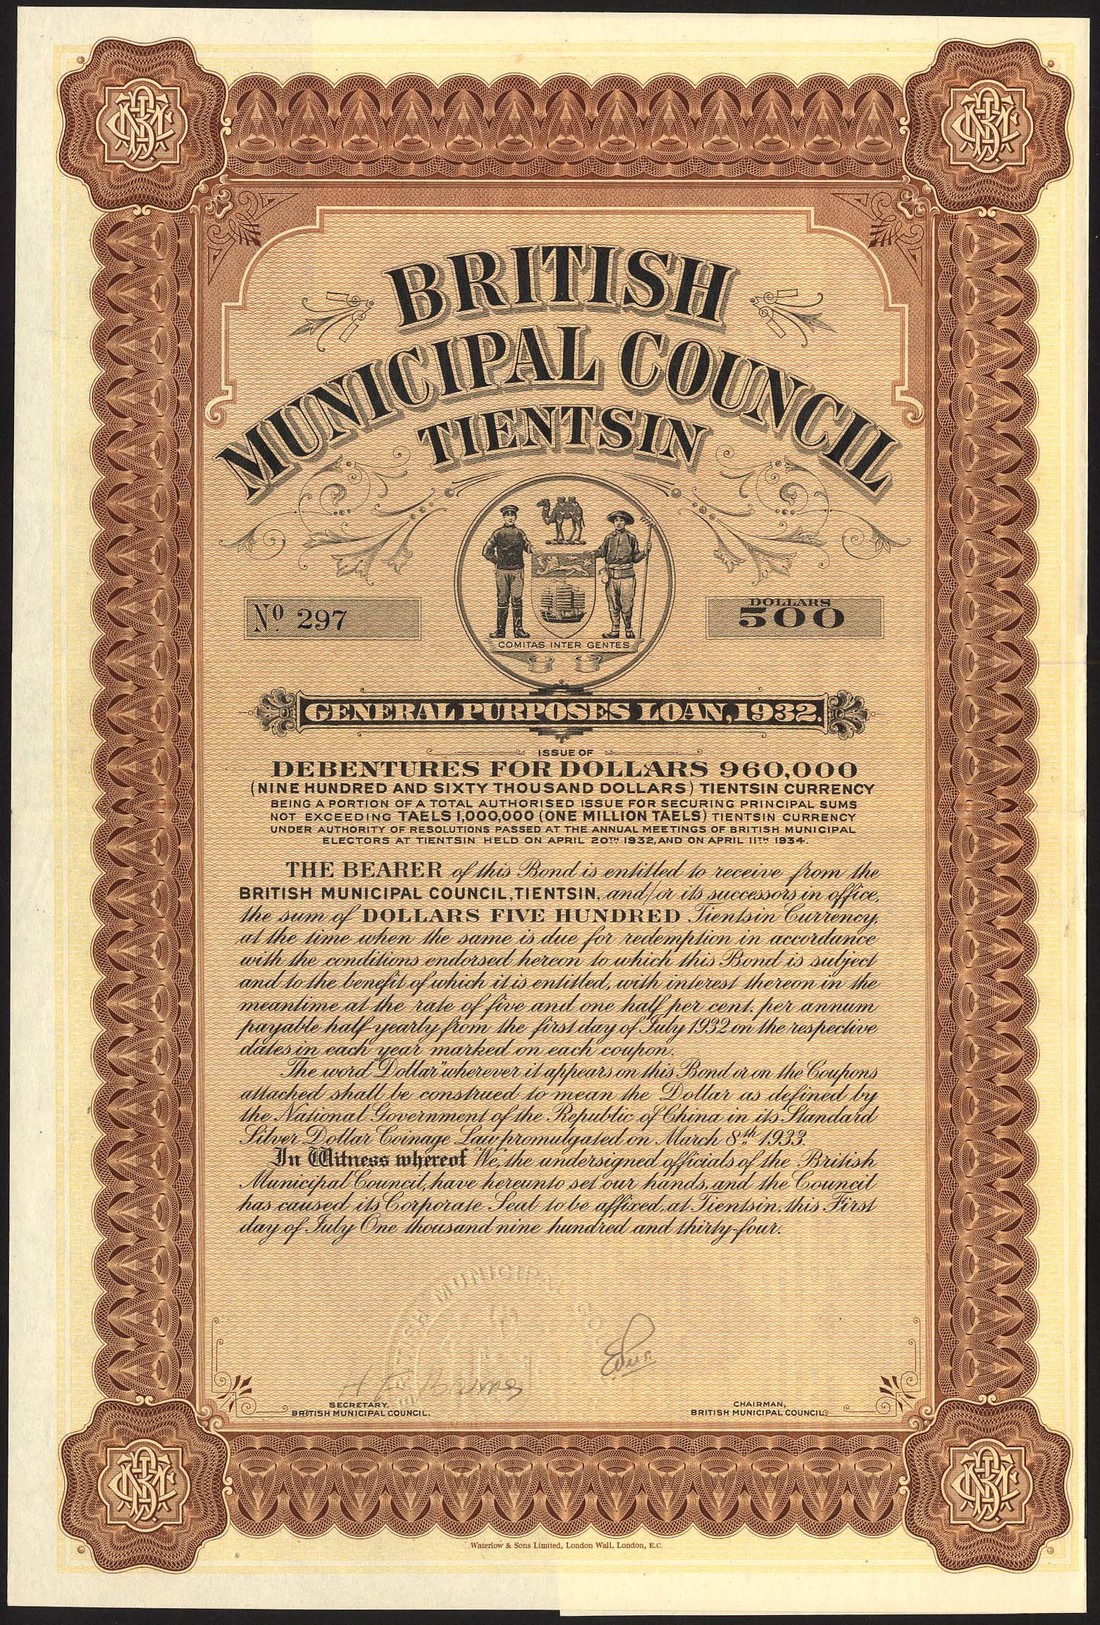 BRITISH
MUNICIPAL COUNCIL
TIENTSIN
No. 297
DOLLARS
500
COMITAS INTER GENTES
GENERAL PURPOSES LOAN, 1932.
ISSUE OF
DEBENTURES FOR DOLLARS 960,000
(NINE HUNDRED AND SIXTY THOUSAND DOLLARS) TIENTSIN CURRENCY
BEING A PORTION OF A TOTAL AUTHORISED ISSUE FOR SECURING PRINCIPAL SUMS
NOT EXCEEDING TAELS 1,000,000 (ONE MILLION TAELS) TIENTSIN CURRENCY
UNDER AUTHORITY OF RESOLUTIONS PASSED AT THE ANNUAL MEETINGS OF BRITISH MUNICIPAL
ELECTORS AT TIENTSIN HELD ON APRIL 20TH 1932, AND ON APRIL 11TH 1934.
THE BEARER of this Bond is entitled to receive from the
BRITISH MUNICIPAL COUNCIL, TIENTSIN, and/or its successors in office,
the sum of DOLLARS FIVE HUNDRED Tientsin Currency,
at the time when the same is due for redemption in accordance
with the conditions endorsed hereon to which this Bond is subject
and to the benefit of which it is entitled, with interest thereon in the
meantime at the rate of five and one half per cent. per annum
payable half yearly from the first day of July 1932 on the respective
dates in each year marked on each coupon.
The word "Dollar" wherever it appears on this Bond or on the Coupons
attached shall be construed to mean the Dollar as defined by
the National Government of the Republic of China in its Standard
Silver Dollar Coinage Law promulgated on March 8th 1933.
In Witness whereof We, the undersigned officials of the British
Municipal Council, have hereunto set our hands, and the Council
has caused its Corporate Seal to be affixed, at Tientsin, this First
day of July One thousand nine hundred and thirty-four.
SECRETARY,
BRITISH MUNICIPAL COUNCIL.
CHAIRMAN,
BRITISH MUNICIPAL COUNCIL.
Waterlow & Sons Limited, London Wall, London, E.C.